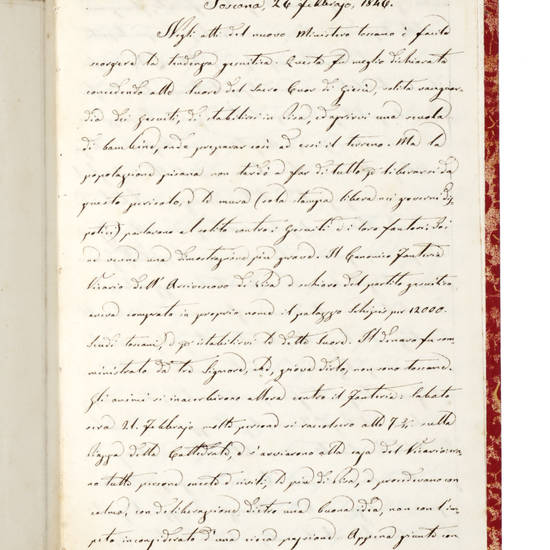 Toscana, 26 febbrajo, 1846.
Negli atti del nuovo Ministero toscano è facile
scorgere la tendenza gesuitica. Questa fu meglio dichiarata
concedendo alle suore del Sacro Cuor di Gesù, solita vanguar-
dia dei gesuiti, di stabilirsi in Pisa, ed aprirvi una scuola
di bambine, onde preparar così ad essi il terreno. Ma la
popolazione pisana non tardò a far di tutto per liberarsi da
questo pericolo, e le mura (sola stampa libera nei governi dis-
potici) parlarono al solito contro i gesuiti e i loro fautori. Poi
ne venne una dimostrazione più grave. Il Canonico Fantería
Vicario dell'Arcivescovo di Pisa e schiavo del partito gesuitico
aveva comprato in proprio nome il palazzo Schippis per 12000.
Scudi toscani, e per istabilirvi le dette suore. Il denaro fu som-
ministrato da tre Signore, che, giova dirlo, non sono toscane.
Gli animi si inacerbirono allora contro il Fantería: sabato
sera 21. febbrajo molte persone si raccolsero alle 7 ½ nella
Piazza della Cattedrale, e s'avviarono alla casa del Vicario: era-
no tutte persone oneste e civili, le più di Pisa, e procedevano con
calma, con deliberazione dietro una buona idea, non con l'im-
peto inconsiderato d'una cieca passione. Appena giunte con